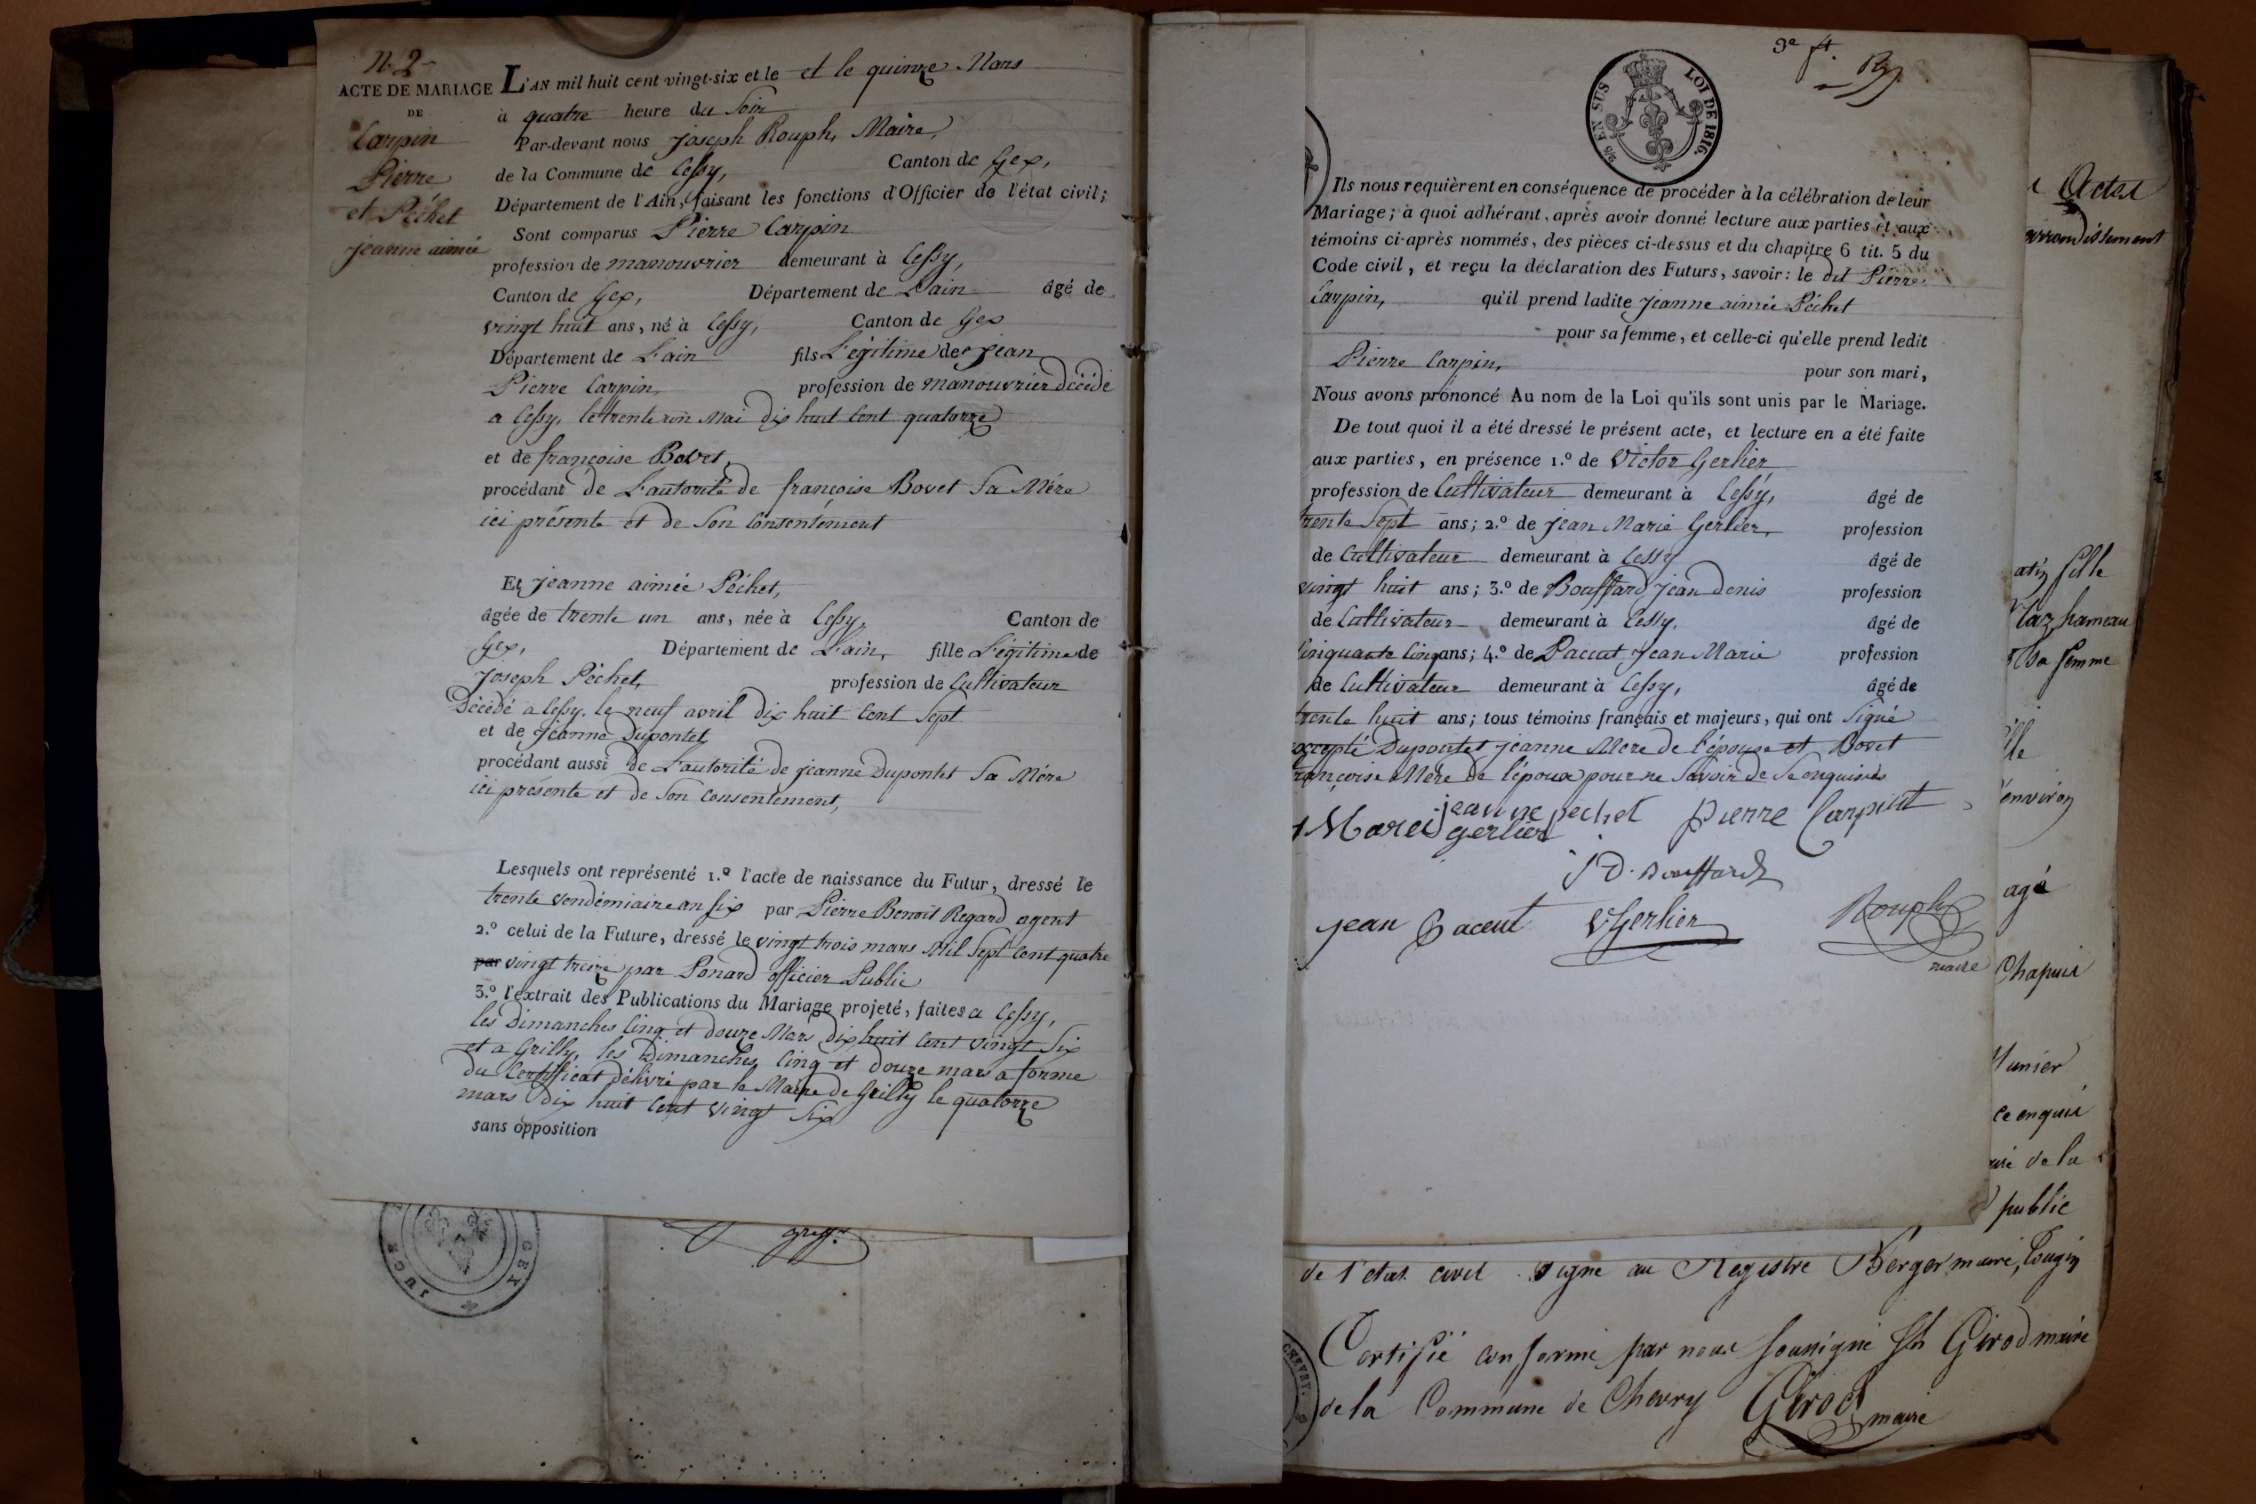 N. 2
ACTE DE MARIAGE
DE
Carpin
Pierre
et Péchet
jeanne aimée
L'AN mil huit cent vingt-six et le et le quinze Mars
à quatre heure du Soir
Par-devant nous joseph Rouph, Maire,
de la Commune de Cessy, Canton de Gex,
Département de l'Ain, faisant les fonctions d'Officier de l'état civil;
Sont comparus Pierre Carpin
profession de manouvrier demeurant à Cessy,
Canton de Gex, Département de L'ain âgé de
vingt huit ans, né à Cessy, Canton de Gex
Département de L'ain fils Légitime de jean
Pierre Carpin, profession de manouvrier Décédé
a Cessy, le trente un Mai dix huit Cent quatorze
et de françoise Bovet,
procédant de L'autorité de françoise Bovet Sa Mère
ici présente et de Son Consentement
Et jeanne aimée Péchet,
âgée de trente un ans, née à Cessy, Canton de
Gex, Département de L'ain, fille Légitime de
Joseph Péchet, profession de Cultivateur
Décédé a Cessy, le neuf avril dix huit Cent Sept
et de jeanne Dupontet
procédant aussi de L'autorité de jeanne Dupontet Sa Mère
ici présente et de Son Consentement,
Lesquels ont représenté 1.º l'acte de naissance du Futur, dressé le
trente vendémiaire an six par Pierre Benoit Regard agent
2.º celui de la Future, dressé le vingt trois mars Mil Sept Cent quatre
par vingt treize par Ponard officier Public
3.º l'extrait des Publications du Mariage projeté, faites a Cessy,
les Dimanches Cinq et douze Mars dix huit Cent vingt Six
et a Grilly, les Dimanches Cinq et douze mars a forme
du Certificat Délivré par le Maire de Grilly le quatorze
mars dix huit Cent vingt Six
sans opposition
JUGE
GEX
greff.
9e
EN SUS
LOI DE 1816.
Ils nous requièrent en conséquence de procéder à la célébration de leur
Mariage; à quoi adhérant, après avoir donné lecture aux parties et aux
témoins ci-après nommés, des pièces ci-dessus et du chapitre 6 tit. 5 du
Code civil, et reçu la déclaration des Futurs, savoir: le dit Pierre
Carpin, qu'il prend ladite jeanne aimée Péchet
pour sa femme, et celle-ci qu'elle prend ledit
Pierre Carpin, pour son mari,
Nous avons prononcé Au nom de la Loi qu'ils sont unis par le Mariage.
De tout quoi il a été dressé le présent acte, et lecture en a été faite
aux parties, en présence 1.º de Victor Gerlier,
profession de Cultivateur demeurant à Cessy, âgé de
trente Sept ans; 2.º de jean Marie Gerlier, profession
de Cultivateur demeurant à Cessy âgé de
vingt huit ans; 3.º de Bouffard jean denis profession
de Cultivateur demeurant à Cessy, âgé de
Cinquante Cinq ans; 4.º de Paccut Jean Marie profession
de Cultivateur demeurant à Cessy, âgé de
trente huit ans; tous témoins français et majeurs, qui ont Signé
excepté Dupontet jeanne Mere de l'épouse et Bovet
françoise Mère de l'époux pour ne Savoir de Se enquises
jeanne pechet Pierre Carpin
Marei gerlier
J D. Bouffard
jean Paccut VGerlier Rouph
maire
Actes
arrondissement
fille
hameau
sa femme
environ
agé
Chapuis
Munier
ce enquis
de la
public
de l'etat civil. Signé au Registre Berger maire, Cougin
Certifié conforme par nous Soussigné Girod maire
de la Commune de Chevry Girod maire
CHEVRY.